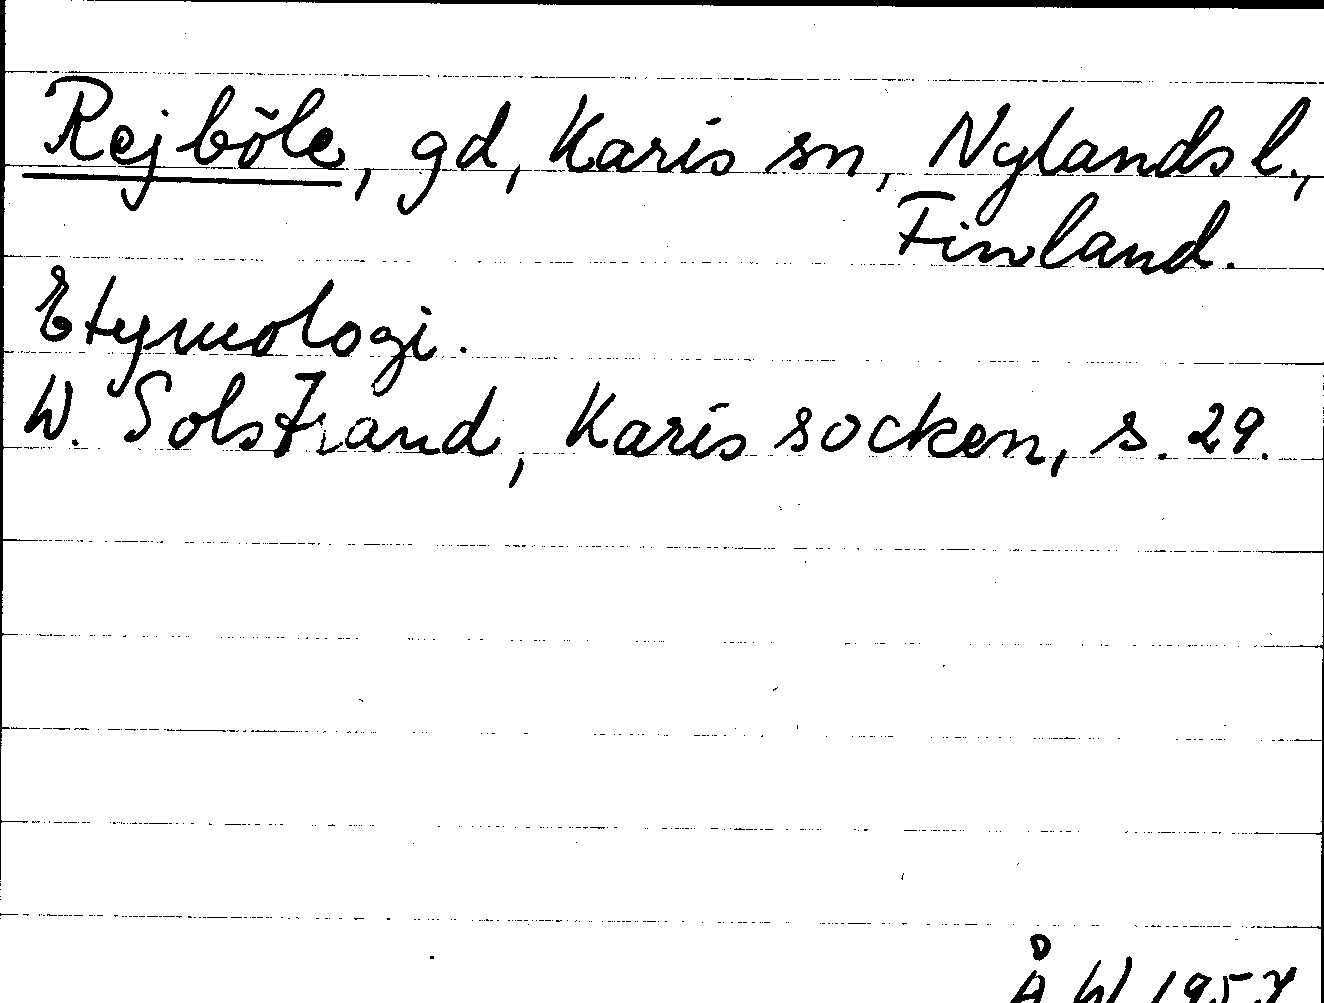 Rejböle, gd, Karis sn, Nylands l.,
Finland.
Etymologi.
W. Solstrand, Karis socken, s. 29.
Å W